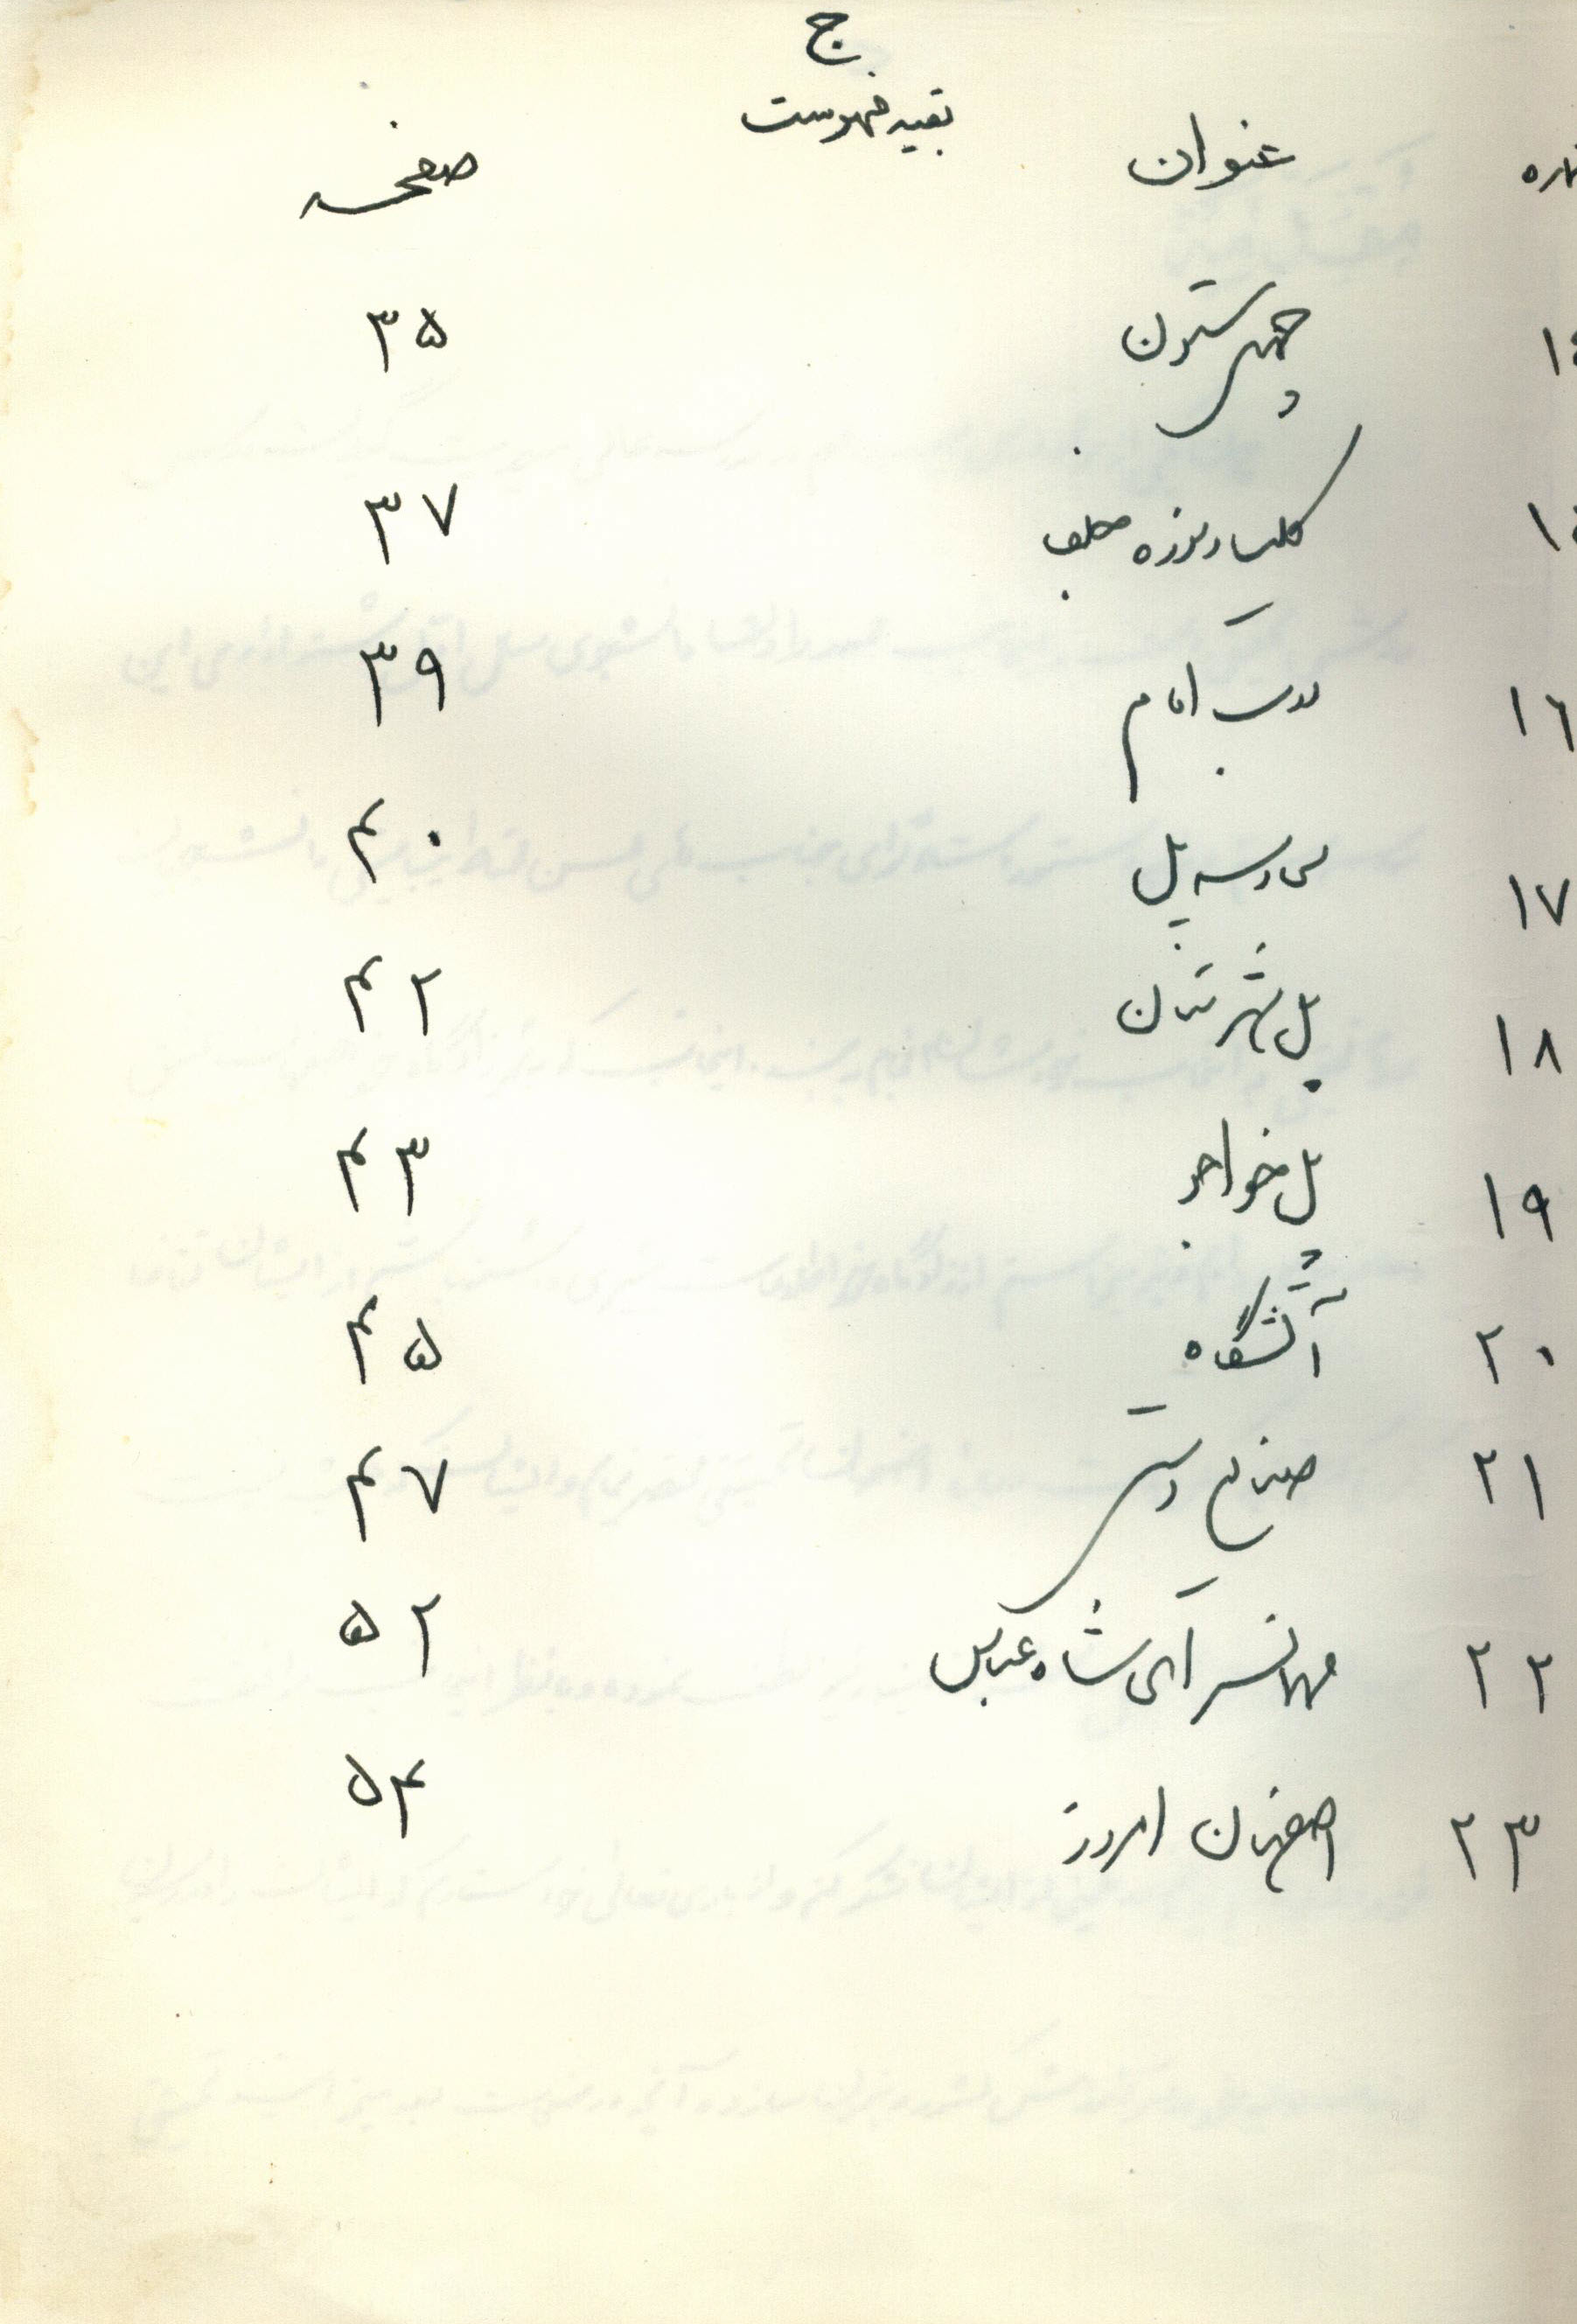 ج
بقیه فهرست
عنوان صفحه
چهلستون ۳۵
کلیسا و موزه جلفا ۳۷
۱۶ درب امام ۳۹
۱۷ سی و سه پل ۴۰
۱۸ پل شهرستان ۴۲
۱۹ پل خواجو ۴۳
۲۰ آتشگاه ۴۵
۲۱ صنایع دستی ۴۷
۲۲ مهمانسرای شاه عباس ۵۲
۲۳ اصفهان امروز ۵۴